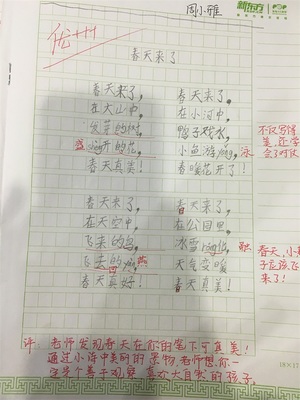 新东方
周小雅
优+++
春天来了
春天来了，
在大山中，
发芽的树，
盛 开的花，
春天真美！
春天来了，
在小河中，
鸭子戏水，
小鱼游 泳
春暖花开了！
春天来了，
在天空中，
飞来的鸟，
飞去的 燕
春天真好！
春天来了，
在公园里，
冰雪 融
天气变暖
春天真美！
不仅写得
美，还学
会了对仗
春天，小
子应该飞
来了！
评：老师发现春天在你的笔下可真美！
通过小诗中美的 景物，老师想你一
定是个善于观察，喜欢大自然的孩子。